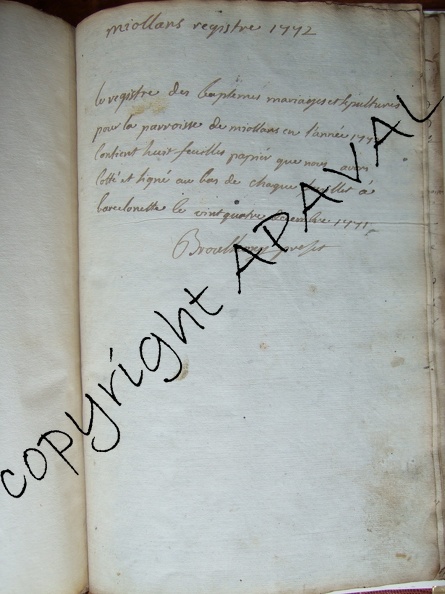 miollans registre 1772
le registre des baptemes mariages et sepultures
pour la parroisse de miollans en l'année 177
Contient huit feuilles papier que nous avons
Cotté et signé au bas de chaque feuillet á
barcelonette le vint quatre decembre 1771
copyright APAVAL